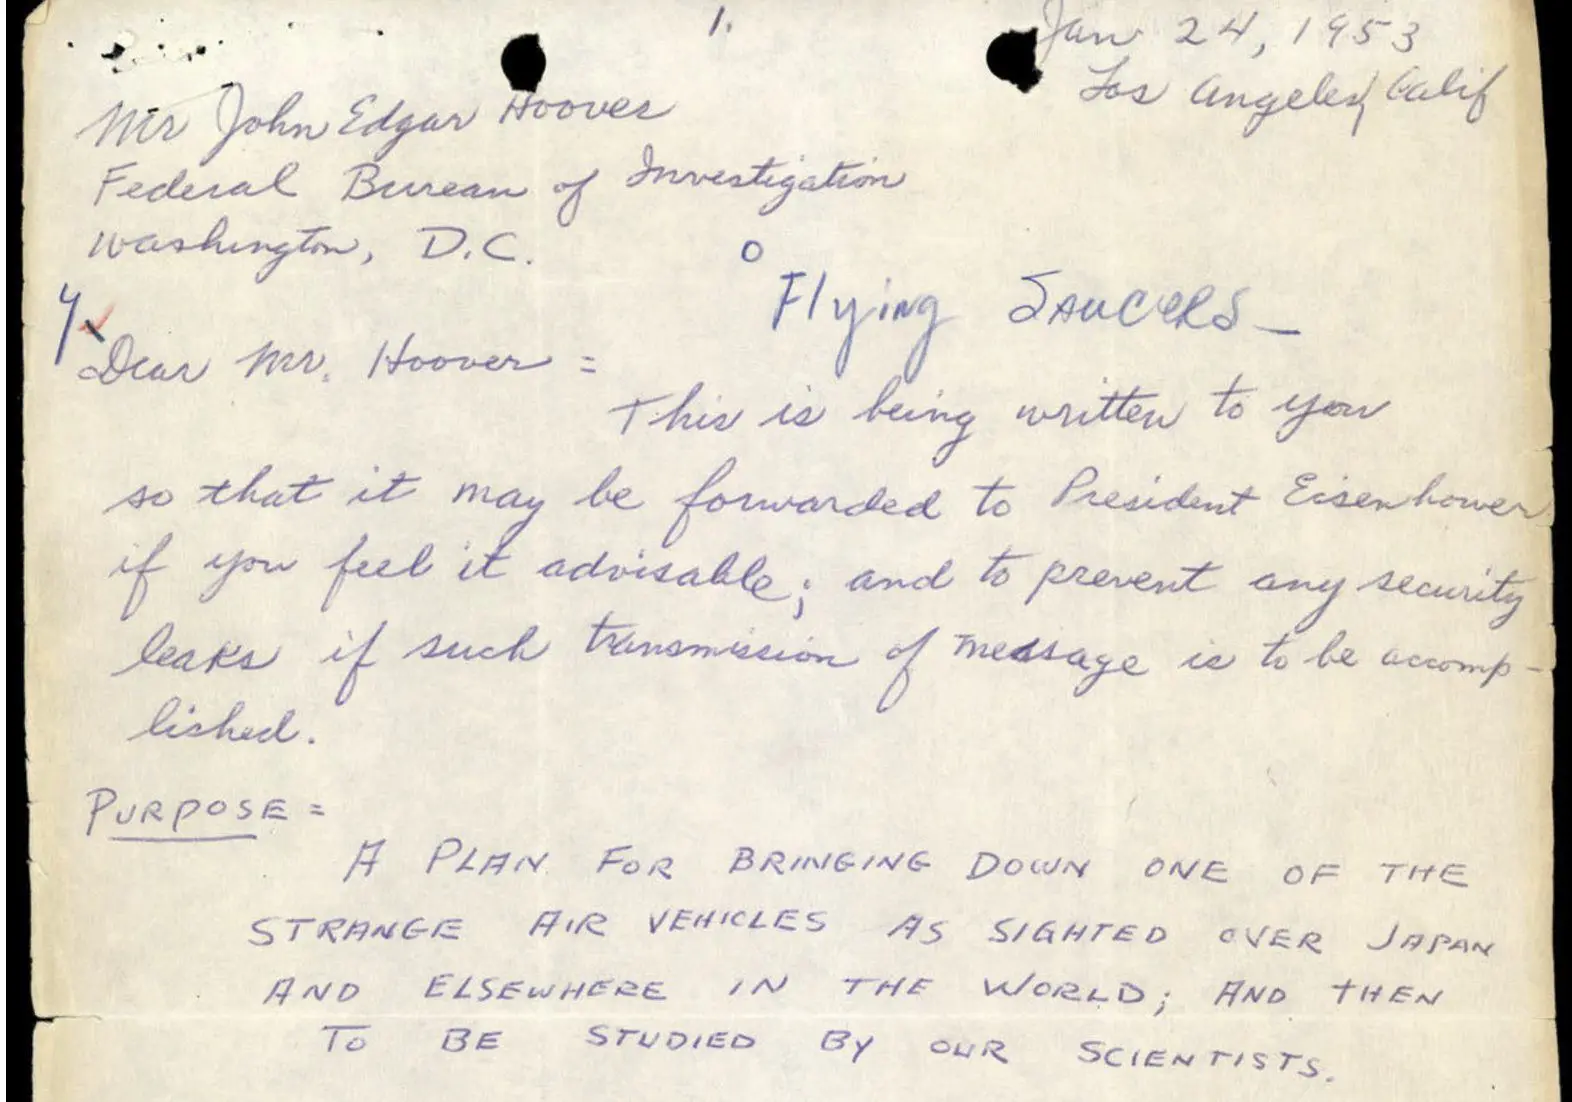 1.
Jan 24, 1953
Los Angeles, Calif
Mr John Edgar Hoover
Federal Bureau of Investigation
Washington, D.C.
Flying SAUCERS—
Dear Mr. Hoover =
This is being written to you
so that it may be forwarded to President Eisenhower
if you feel it advisable; and to prevent any security
leaks if such transmission of message is to be accomp-
lished.
PURPOSE =
A PLAN FOR BRINGING DOWN ONE OF THE
STRANGE AIR VEHICLES AS SIGHTED OVER JAPAN
AND ELSEWHERE IN THE WORLD; AND THEN
TO BE STUDIED BY OUR SCIENTISTS.